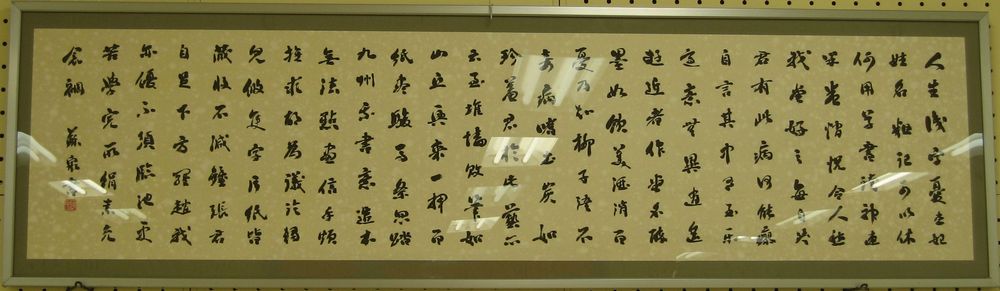 人生識字憂患始
姓名粗記可以休
何用草書誇神速
開卷惝怳令人愁
我嘗好之每自笑
君有此病何能瘳
自言其中有至樂
適意無異逍遙
遊近者作堂名醉
墨如飲美酒消百
憂乃知柳子語不
妄病嗜土炭如
珍羞君於此藝亦
云至堆牆敗筆如
山丘興來一揮百
紙盡駿馬倏忽踏
九州我書意造本
無法點畫信手煩
推求胡為議論獨
見假隻字片紙皆
藏收不減鍾張君
自足下方羅趙我
亦優不須臨池更
苦學完取絹素充
衾裯